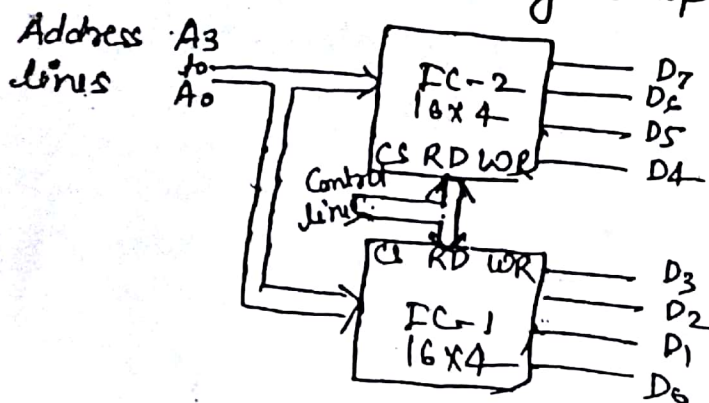 Address A3
lines to
A0
IC-2
16x4
CS RD WR
D7
D6
D5
D4
Control
lines
CS RD WR
IC-1
16x4
D3
D2
D1
D0